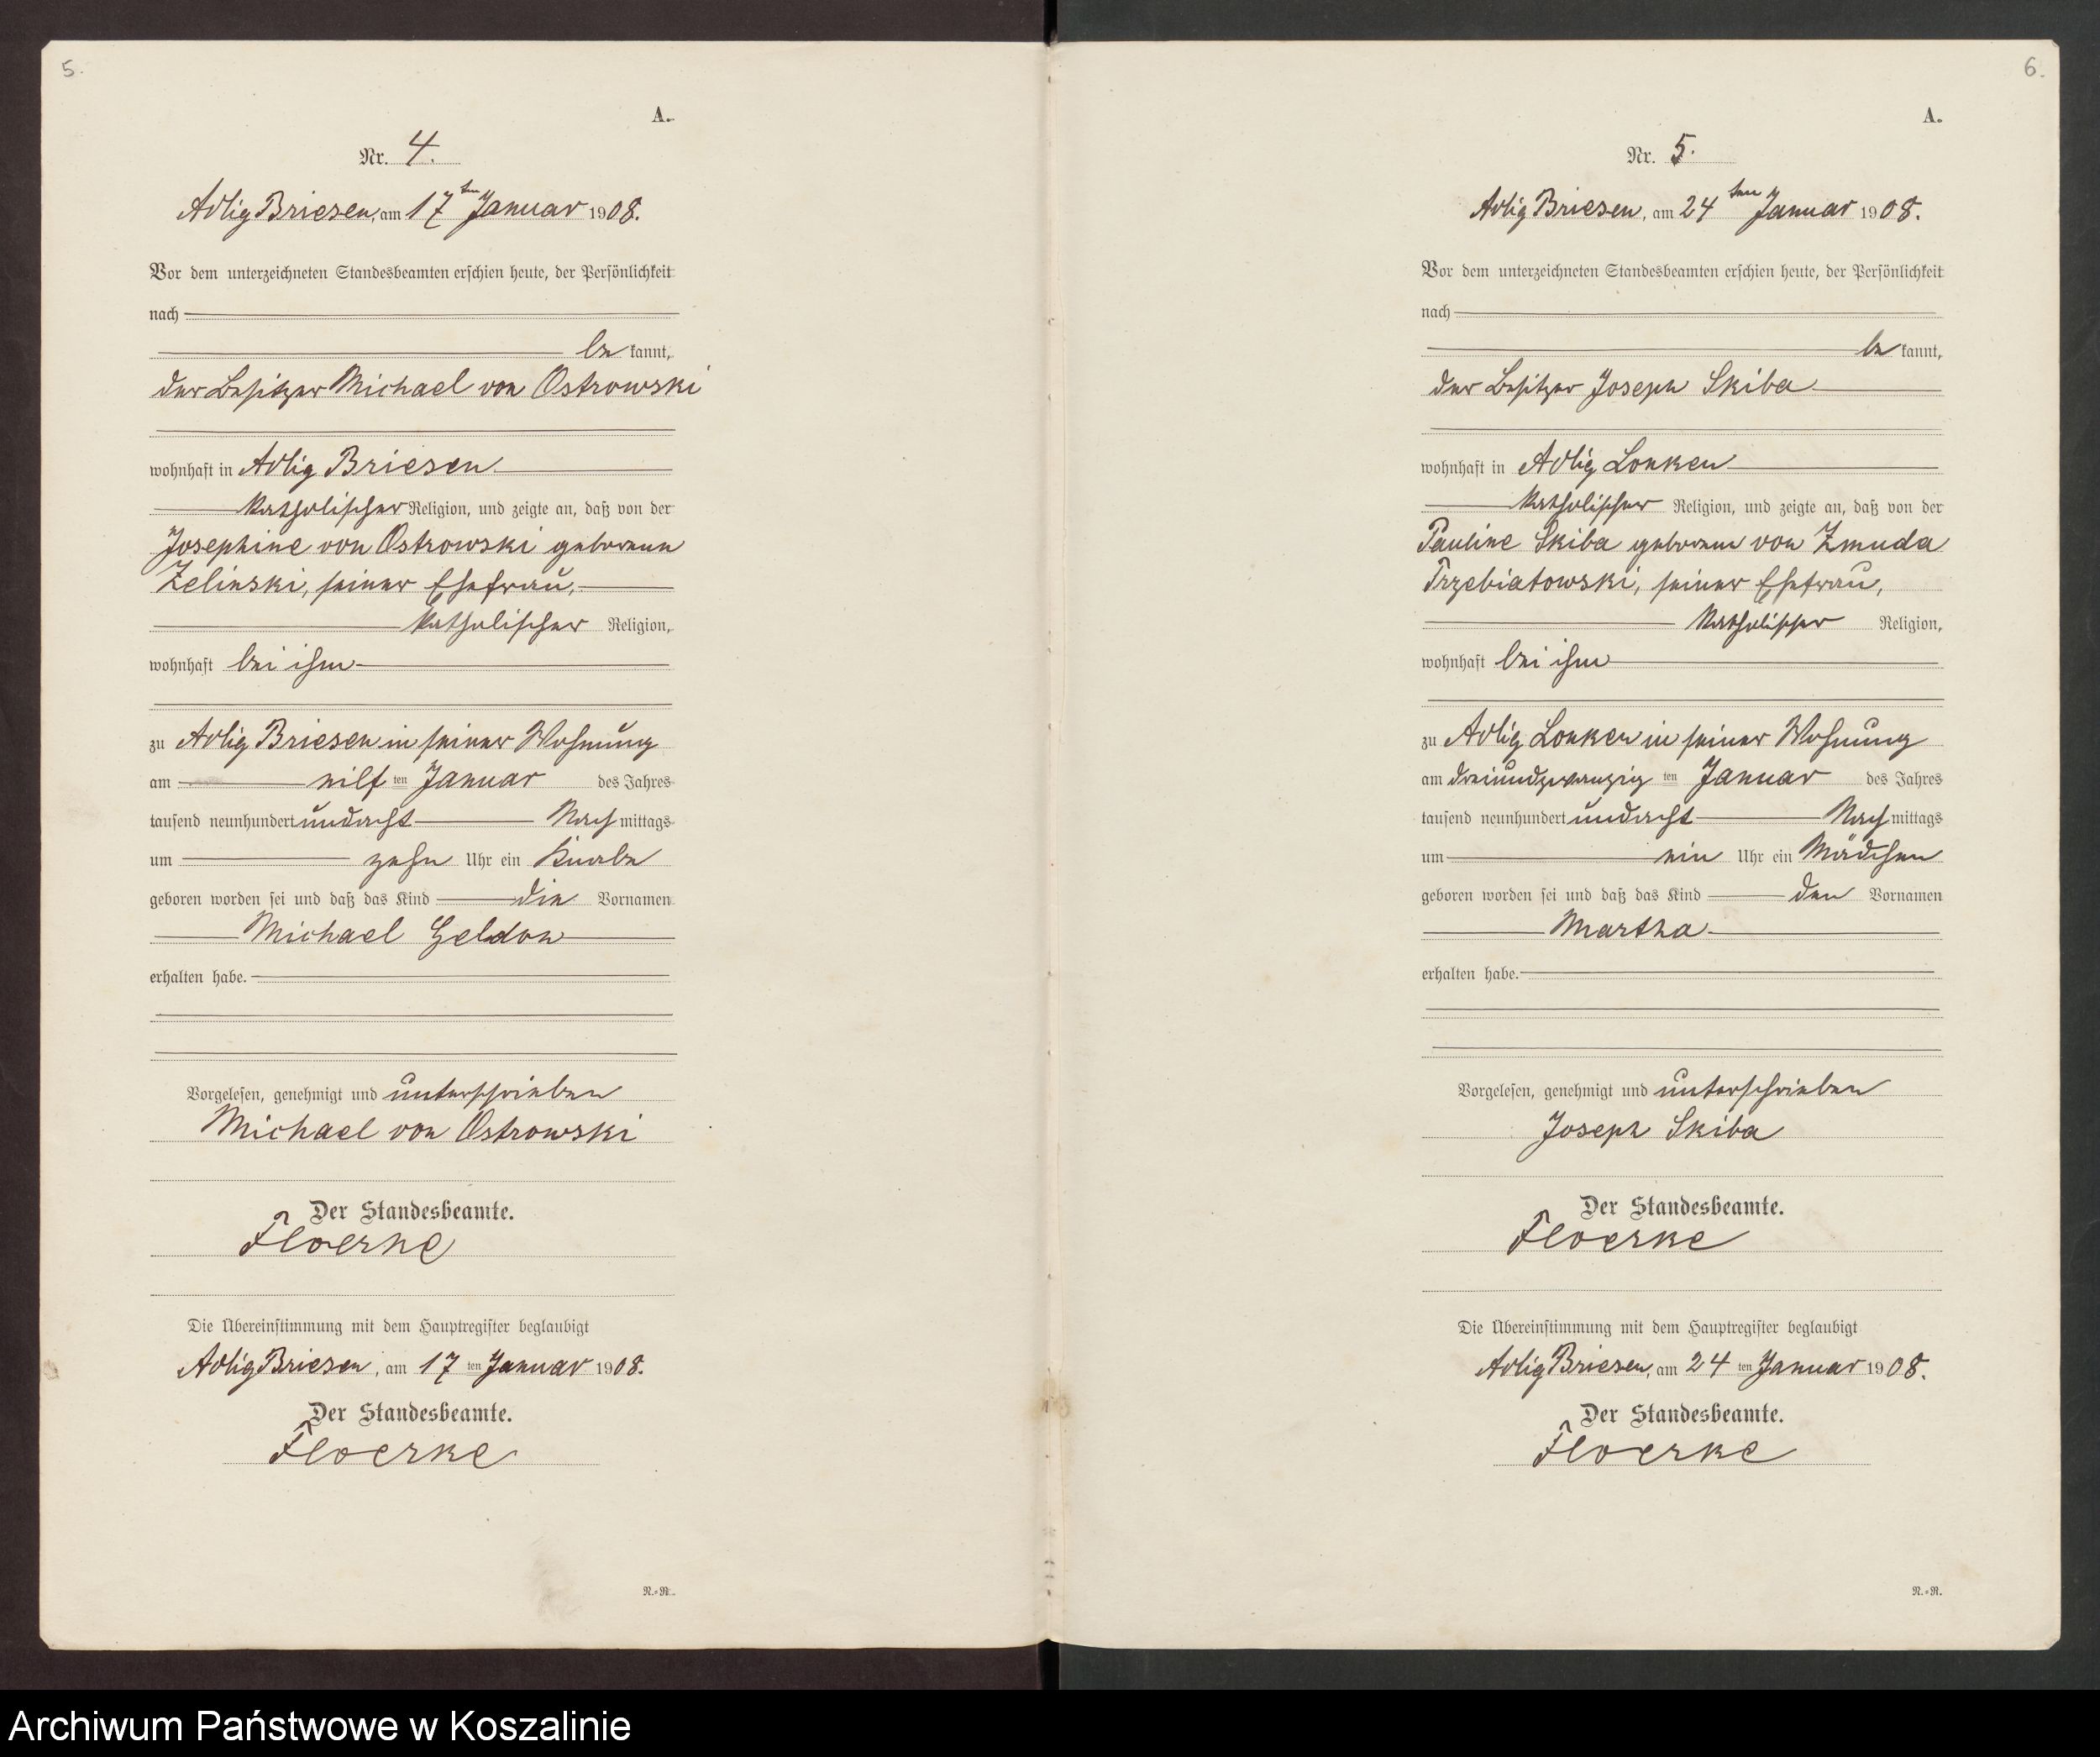 5.
A.
Nr. 4.
Adlig Briesen, am 17ten Januar 1908.
Vor dem unterzeichneten Standesbeamten erschien heute, der Persönlichkeit
nach
be kannt,
der Besitzer Michael von Ostrowski
wohnhaft in Adlig Briesen
katholischer Religion, und zeigte an, daß von der
Josephine von Ostrowski geborenen
Zelinski, seiner Ehefrau,
katholischer Religion,
wohnhaft bei ihm
zu Adlig Briesen in seiner Wohnung
am elf ten Januar des Jahres
tausend neunhundert undacht Nach mittags
um zehn Uhr ein Knabe
geboren worden sei und daß das Kind die Vornamen
Michael Geldon
erhalten habe.
Vorgelesen, genehmigt und unterschrieben
Michael von Ostrowski
Der Standesbeamte.
Floerke
Die Übereinstimmung mit dem Hauptregister beglaubigt
Adlig Briesen, am 17 ten Januar 1908.
Der Standesbeamte.
Floerke
N.=R.
6.
A.
Nr. 5.
Adlig Briesen, am 24ten Januar 1908.
Vor dem unterzeichneten Standesbeamten erschien heute, der Persönlichkeit
nach
be kannt,
der Besitzer Joseph Skiba
wohnhaft in Adlig Lonken
katholischer Religion, und zeigte an, daß von der
Pauline Skiba geborene von Zmuda
Trzebiatowski, seiner Ehefrau,
katholischer Religion,
wohnhaft bei ihm
zu Adlig Lonken in seiner Wohnung
am dreiundzwanzig ten Januar des Jahres
tausend neunhundert undacht Nach mittags
um ein Uhr ein Mädchen
geboren worden sei und daß das Kind den Vornamen
Martha
erhalten habe.
Vorgelesen, genehmigt und unterschrieben
Joseph Skiba
Der Standesbeamte.
Floerke
Die Übereinstimmung mit dem Hauptregister beglaubigt
Adlig Briesen, am 24 ten Januar 1908.
Der Standesbeamte.
Floerke
N.=R.
Archiwum Państwowe w Koszalinie